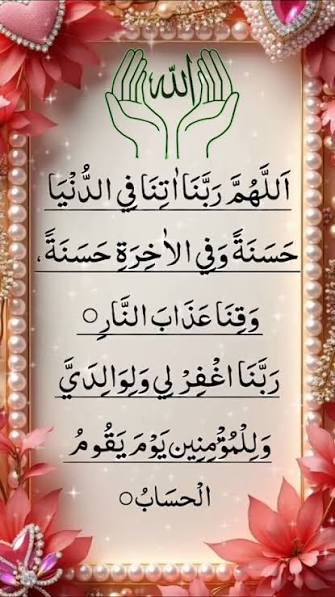 الله
اَللَّهُمَّ رَبَّنَا اٰتِنَا فِي الدُّنْيَا
حَسَنَةً وَفِي الاٰخِرَةِ حَسَنَةً،
وَقِنَا عَذَابَ النَّارِ○
رَبَّنَا اغْفِرْ لِي وَلِوَالِدَيَّ
وَلِلْمُؤْمِنِين يَوْمَ يَقُومُ
الْحسَابُ○